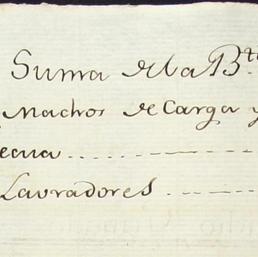 Suma de la B.ta
Machos de Carga y
ecua
Lavradores